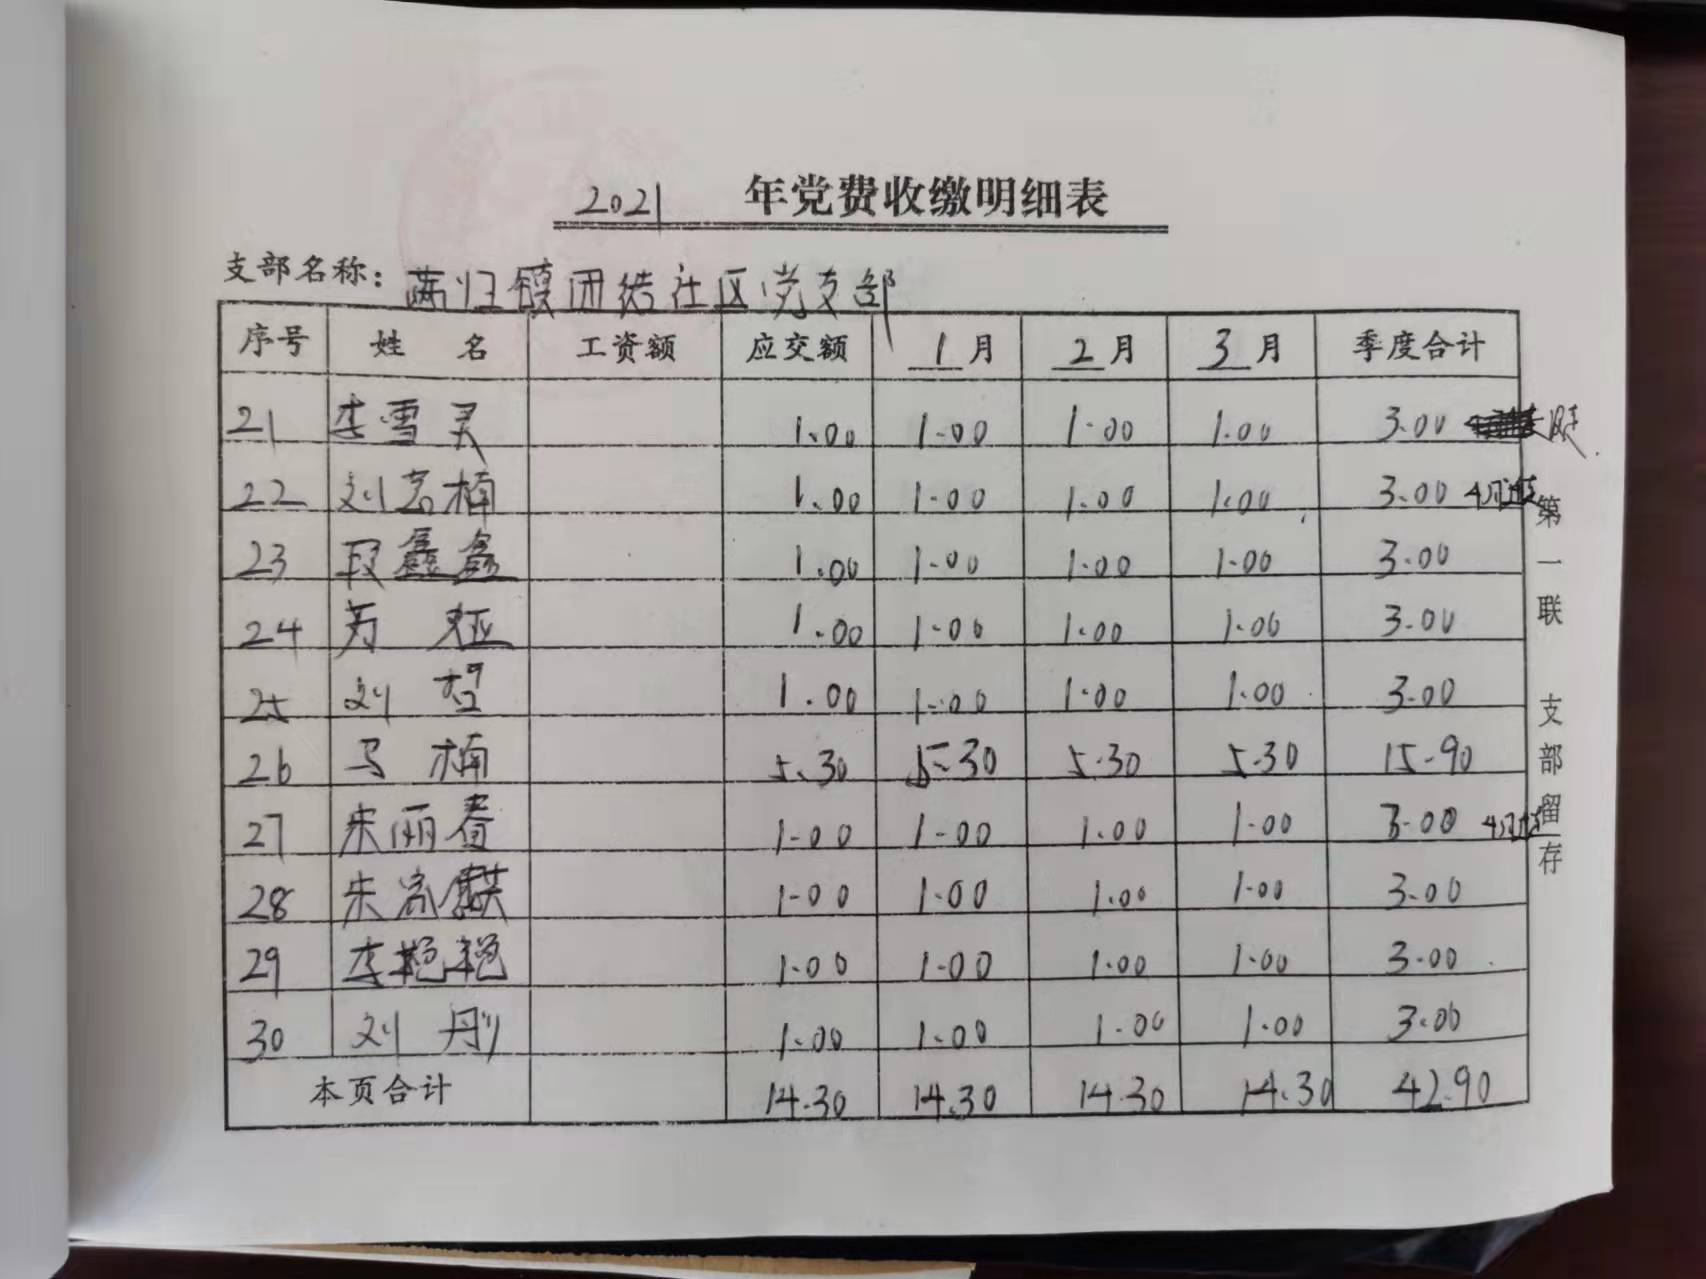 2021 年党费收缴明细表
支部名称: 满归镇团结社区党支部
序号 姓 名 工资额 应交额 1月 2月 3月 季度合计
21 李雪灵 1.00 1.00 1.00 1.00 3.00
22 刘若楠 1.00 1.00 1.00 1.00 3.00
23 段鑫鑫 1.00 1.00 1.00 1.00 3.00
24 1.00 1.00 1.00 1.00 3.00
25 刘 1.00 1.00 1.00 1.00 3.00
26 马 楠 5.30 5.30 5.30 5.30 15.90
27 朱丽春 1.00 1.00 1.00 1.00 3.00
28 朱家麒 1.00 1.00 1.00 1.00 3.00
29 李艳艳 1.00 1.00 1.00 1.00 3.00
30 刘 彤 1.00 1.00 1.00 1.00 3.00
本页合计 14.30 14.30 14.30 14.30 42.90
第一联 支部留存